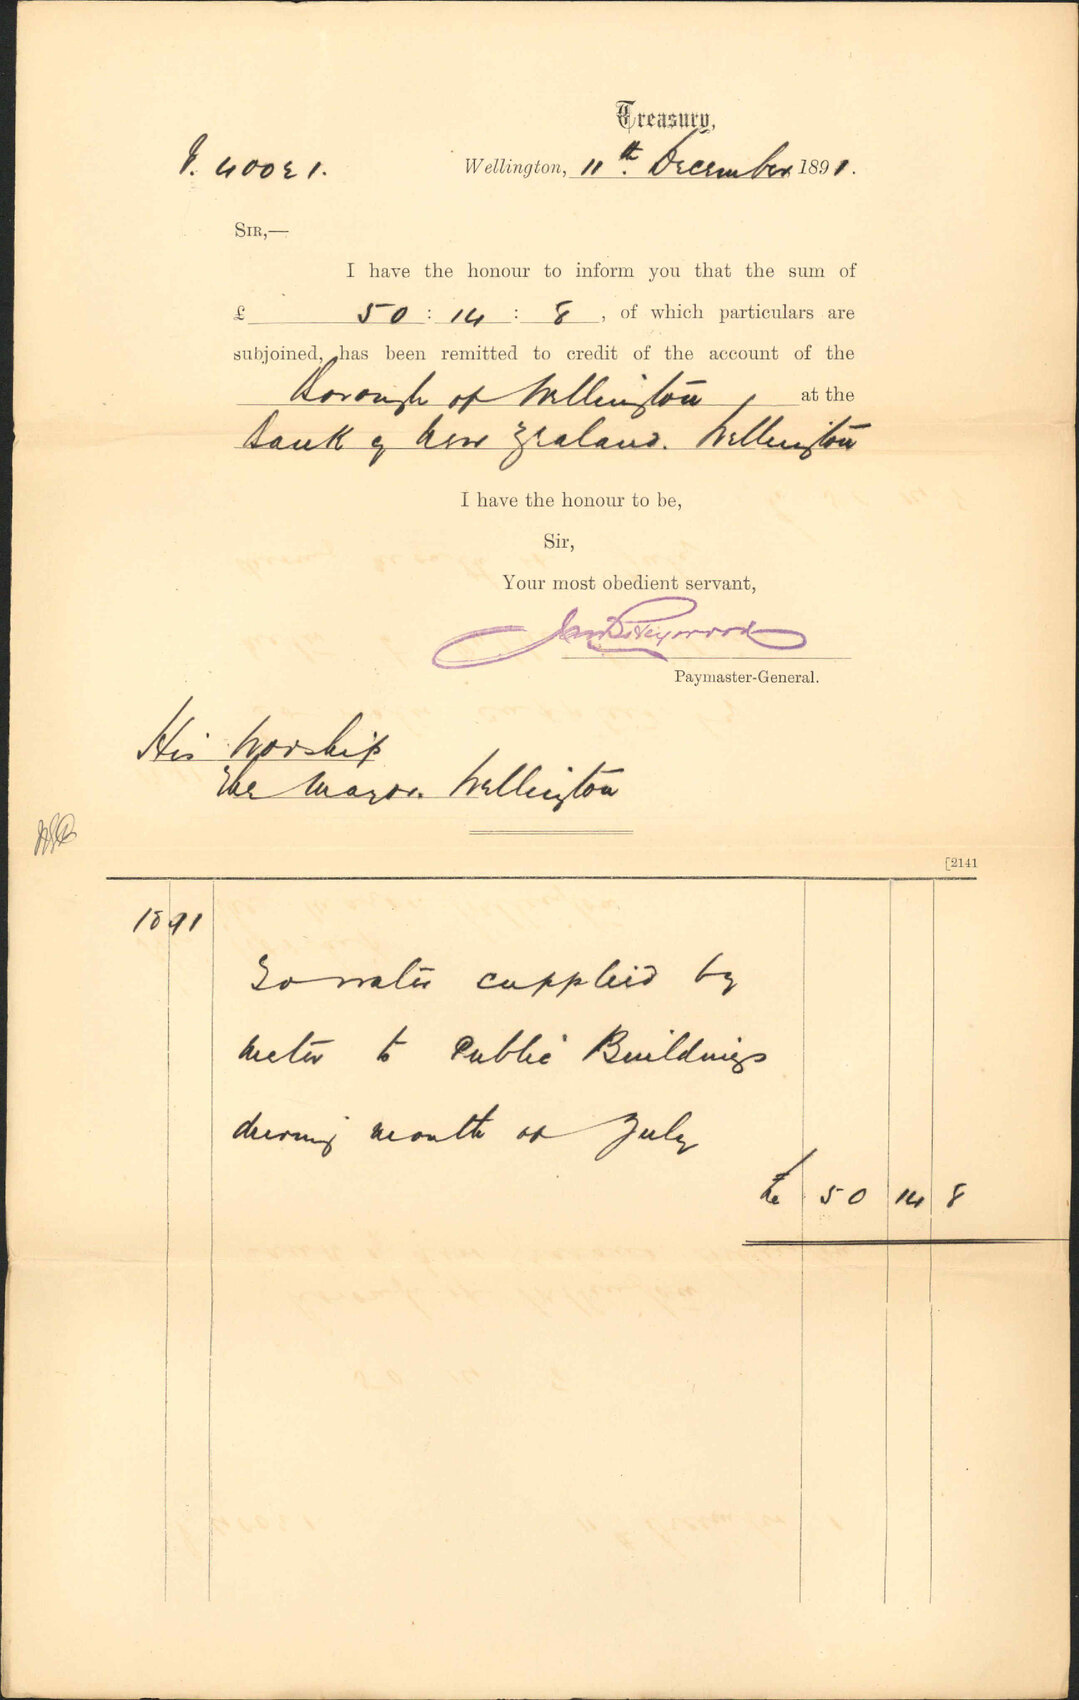 Treasury,
V. 40021. Wellington, 11th. December 1891.
SIR,—
I have the honour to inform you that the sum of
£ 50 : 14 : 8 , of which particulars are
subjoined, has been remitted to credit of the account of the
Borough of Wellington at the
Bank of New Zealand. Wellington
I have the honour to be,
Sir,
Your most obedient servant,
Jas B Heywood
Paymaster-General.
His Worship
The Mayor. Wellington
[2141
1891
To water supplied by
meter to Public Buildings
during month of July
£ 50 14 8